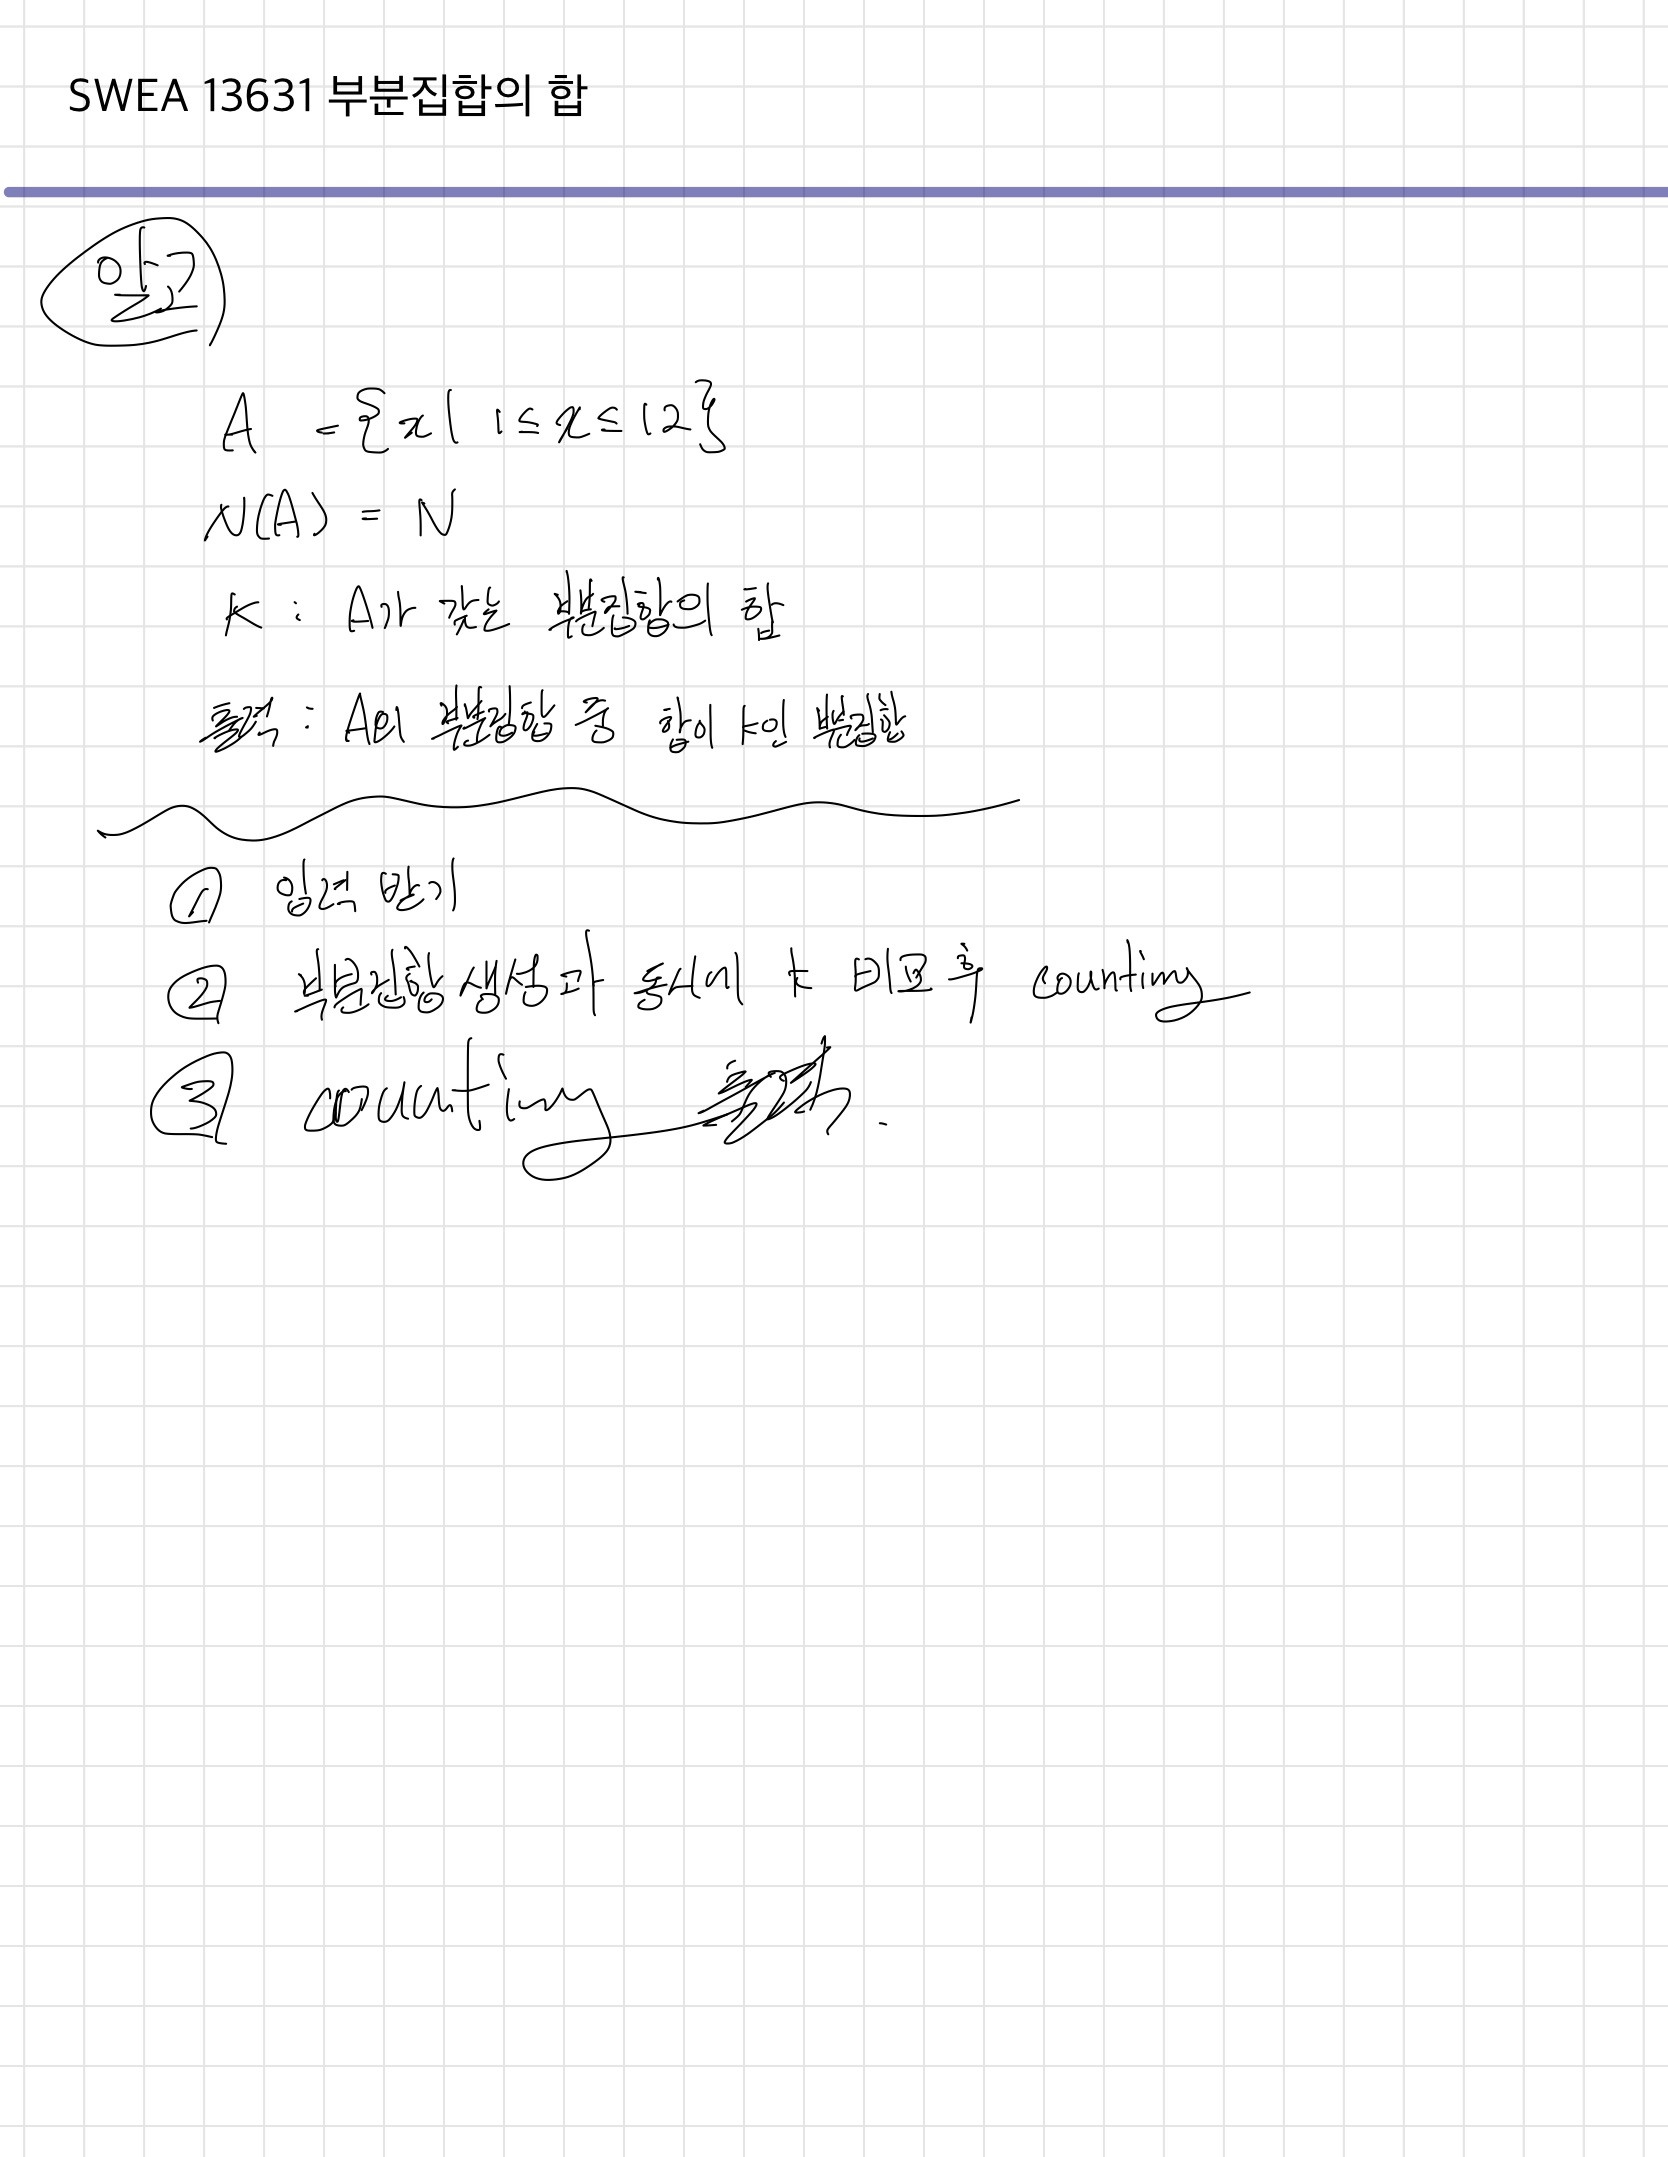 SWEA 13631 부분집합의 합
알고
A = {x | 1 ≤ x ≤ 12}
N(A) = N
K : A가 갖는 부분집합의 합
출력 : A의 부분집합 중 합이 K인 부분집합
① 입력 받기
② 부분집합 생성과 동시에 k 비교 후 counting
③ counting 출력.